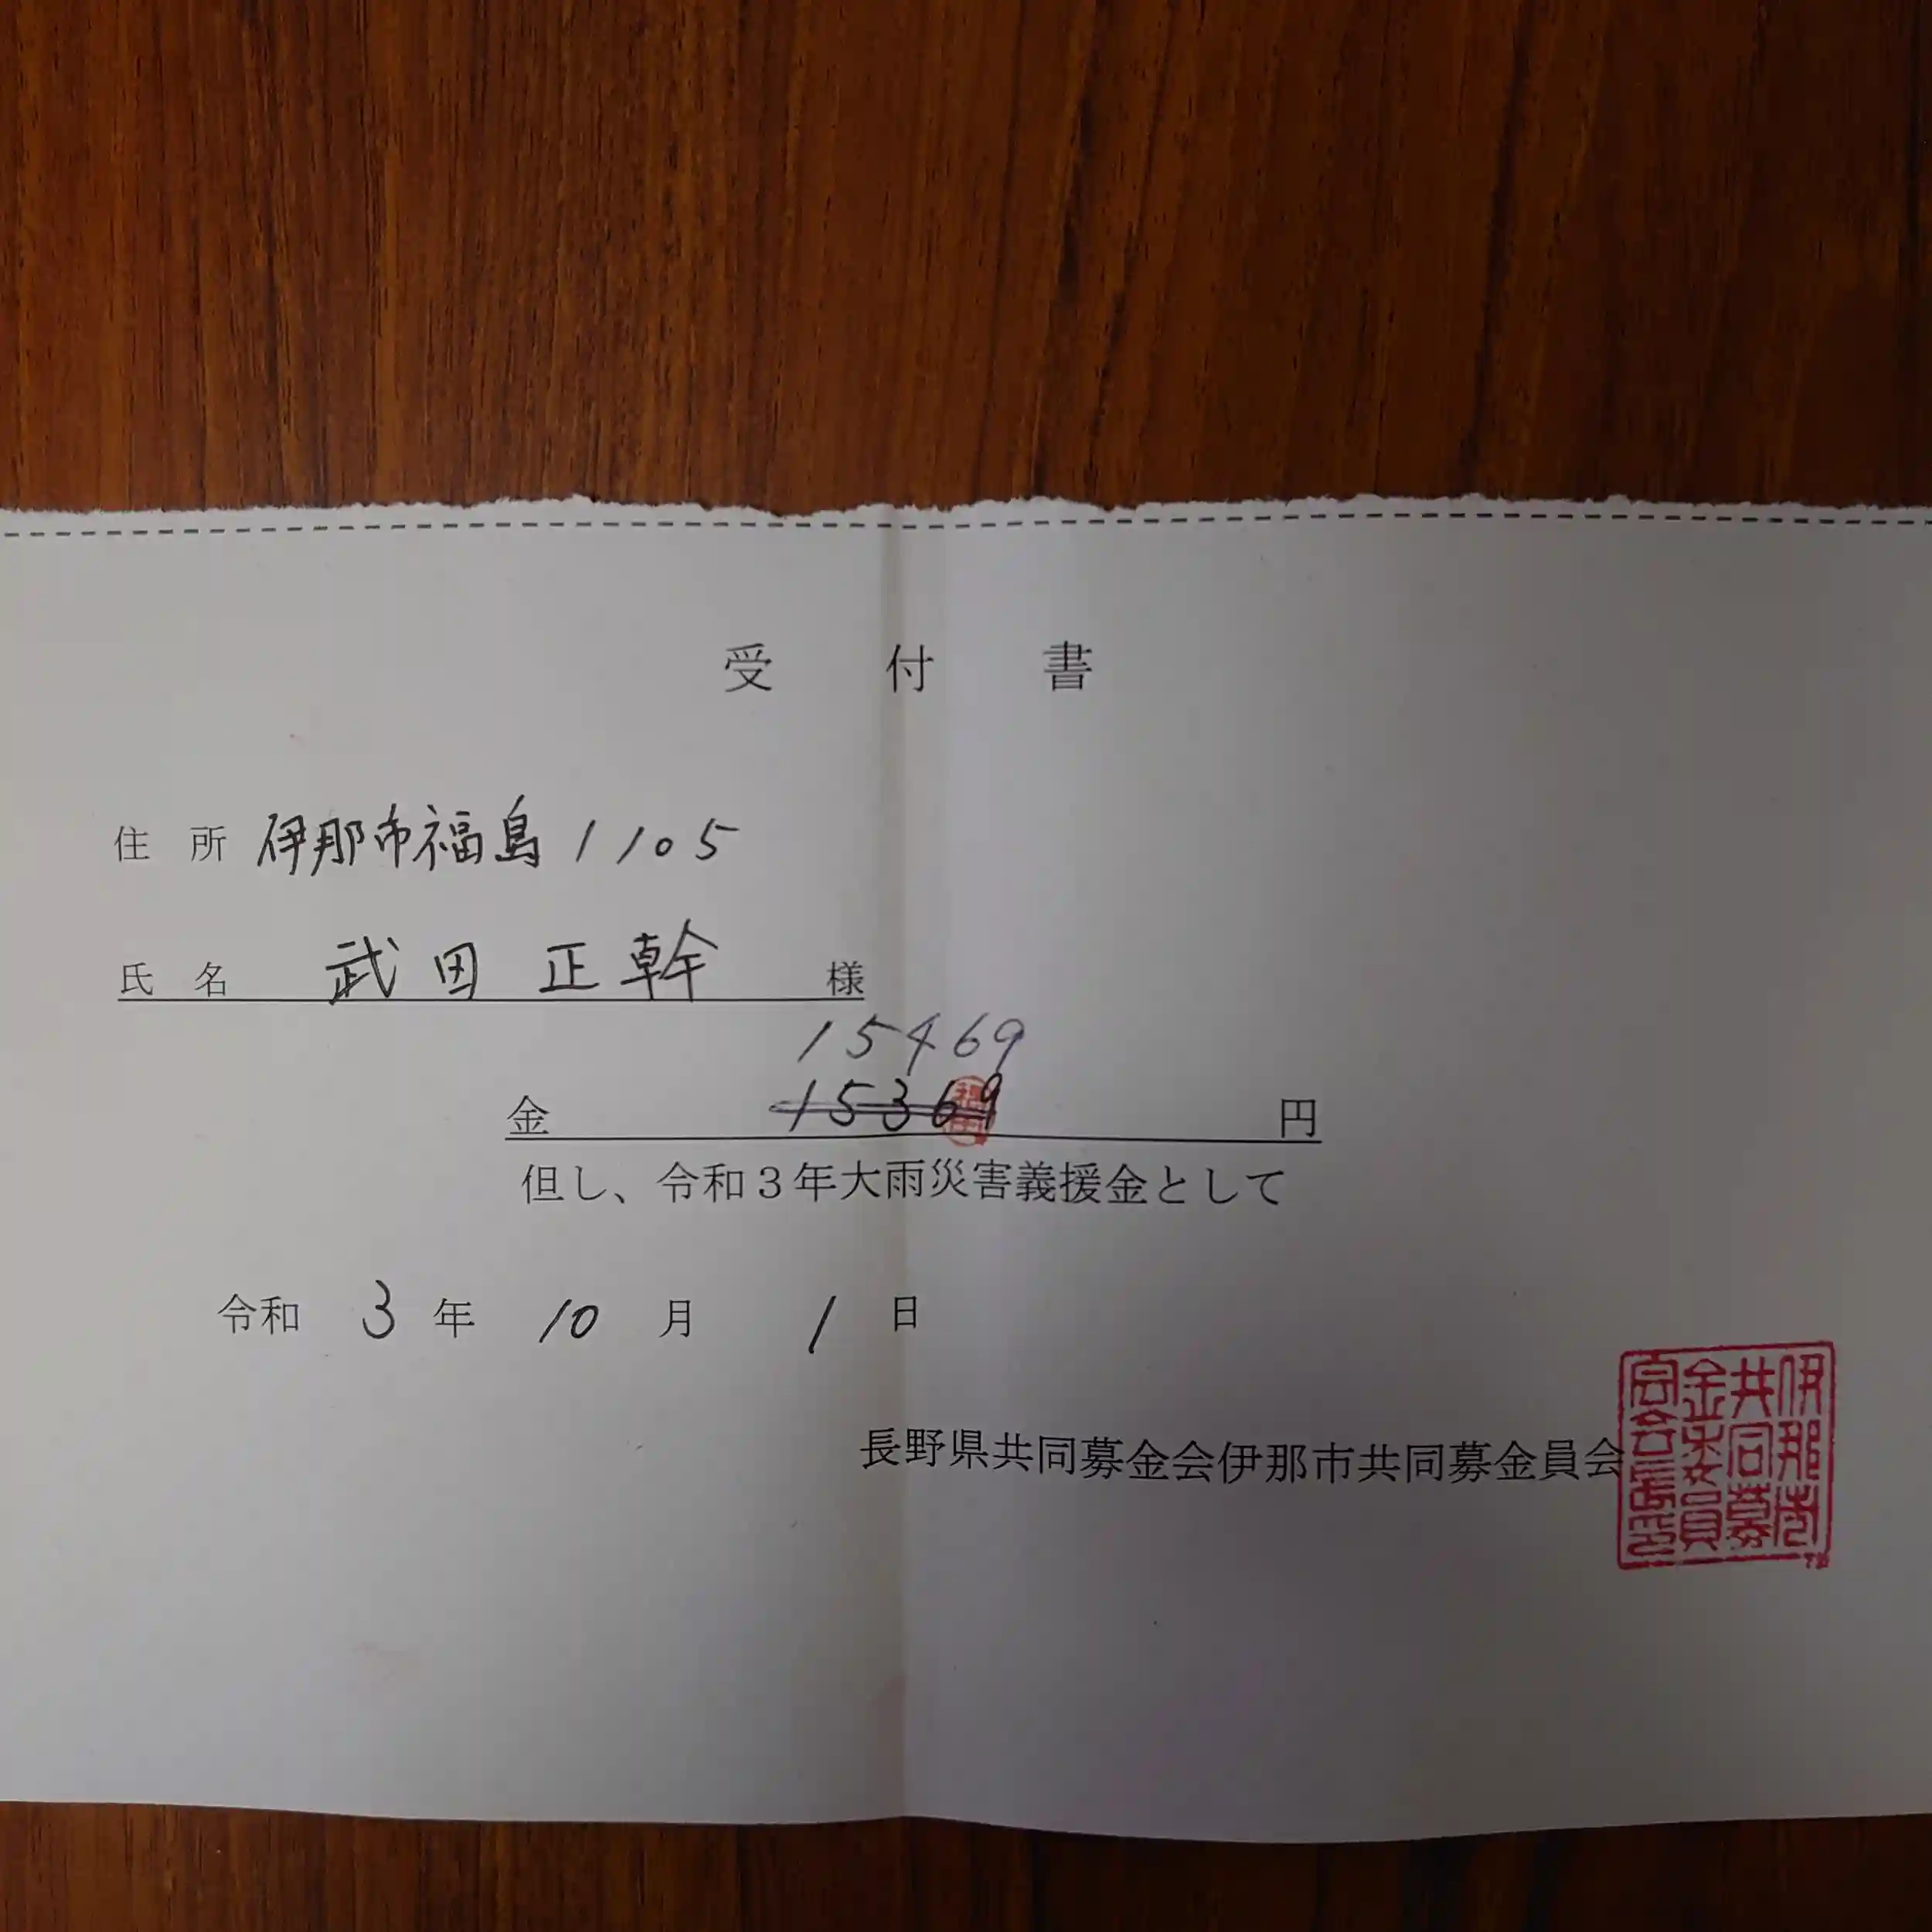 受付書
住所 伊那市福島1105
氏名 武田正幹 様
15469
金 15369 円
但し、令和3年大雨災害義援金として
令和 3 年 10 月 1 日
長野県共同募金会伊那市共同募金員会
伊那市
共同募
金委員
会会長印